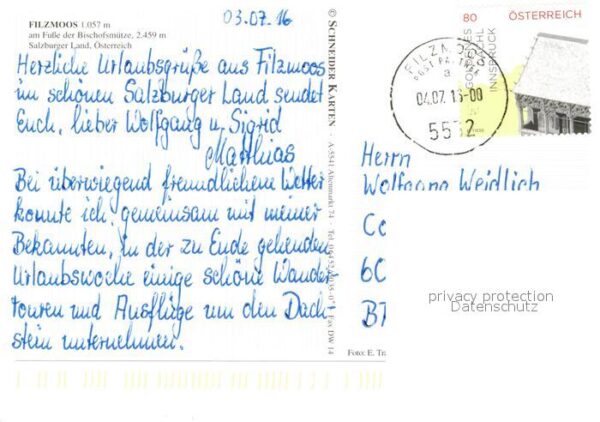 03.07.16
FILZMOOS 1.057 m
am Fuße der Bischofsmütze, 2.459 m
Salzburger Land, Österreich
Herzliche Urlaubsgrüße aus Filzmoos
im schönen Salzburger Land sendet
Euch, lieber Wolfgang u. Sigrid
Matthias
Bei überwiegend freundlichem Wetter
konnte ich, gemeinsam mit meiner
Bekannten, in der zu Ende gehenden
Urlaubswoche einige schöne Wander-
touren und Ausflüge um den Dach-
stein unternehmen.
© SCHNEIDER KARTEN · A-5541 Altenmarkt 74
Fax DW 14
Foto: E. Tra
80 ÖSTERREICH
GOLDENES DACHL
INNSBRUCK
FILZMOOS
a
04.07.16-00
5532
Herrn
Wolfgang Weidlich
Co
6C
BT
privacy protection
Datenschutz